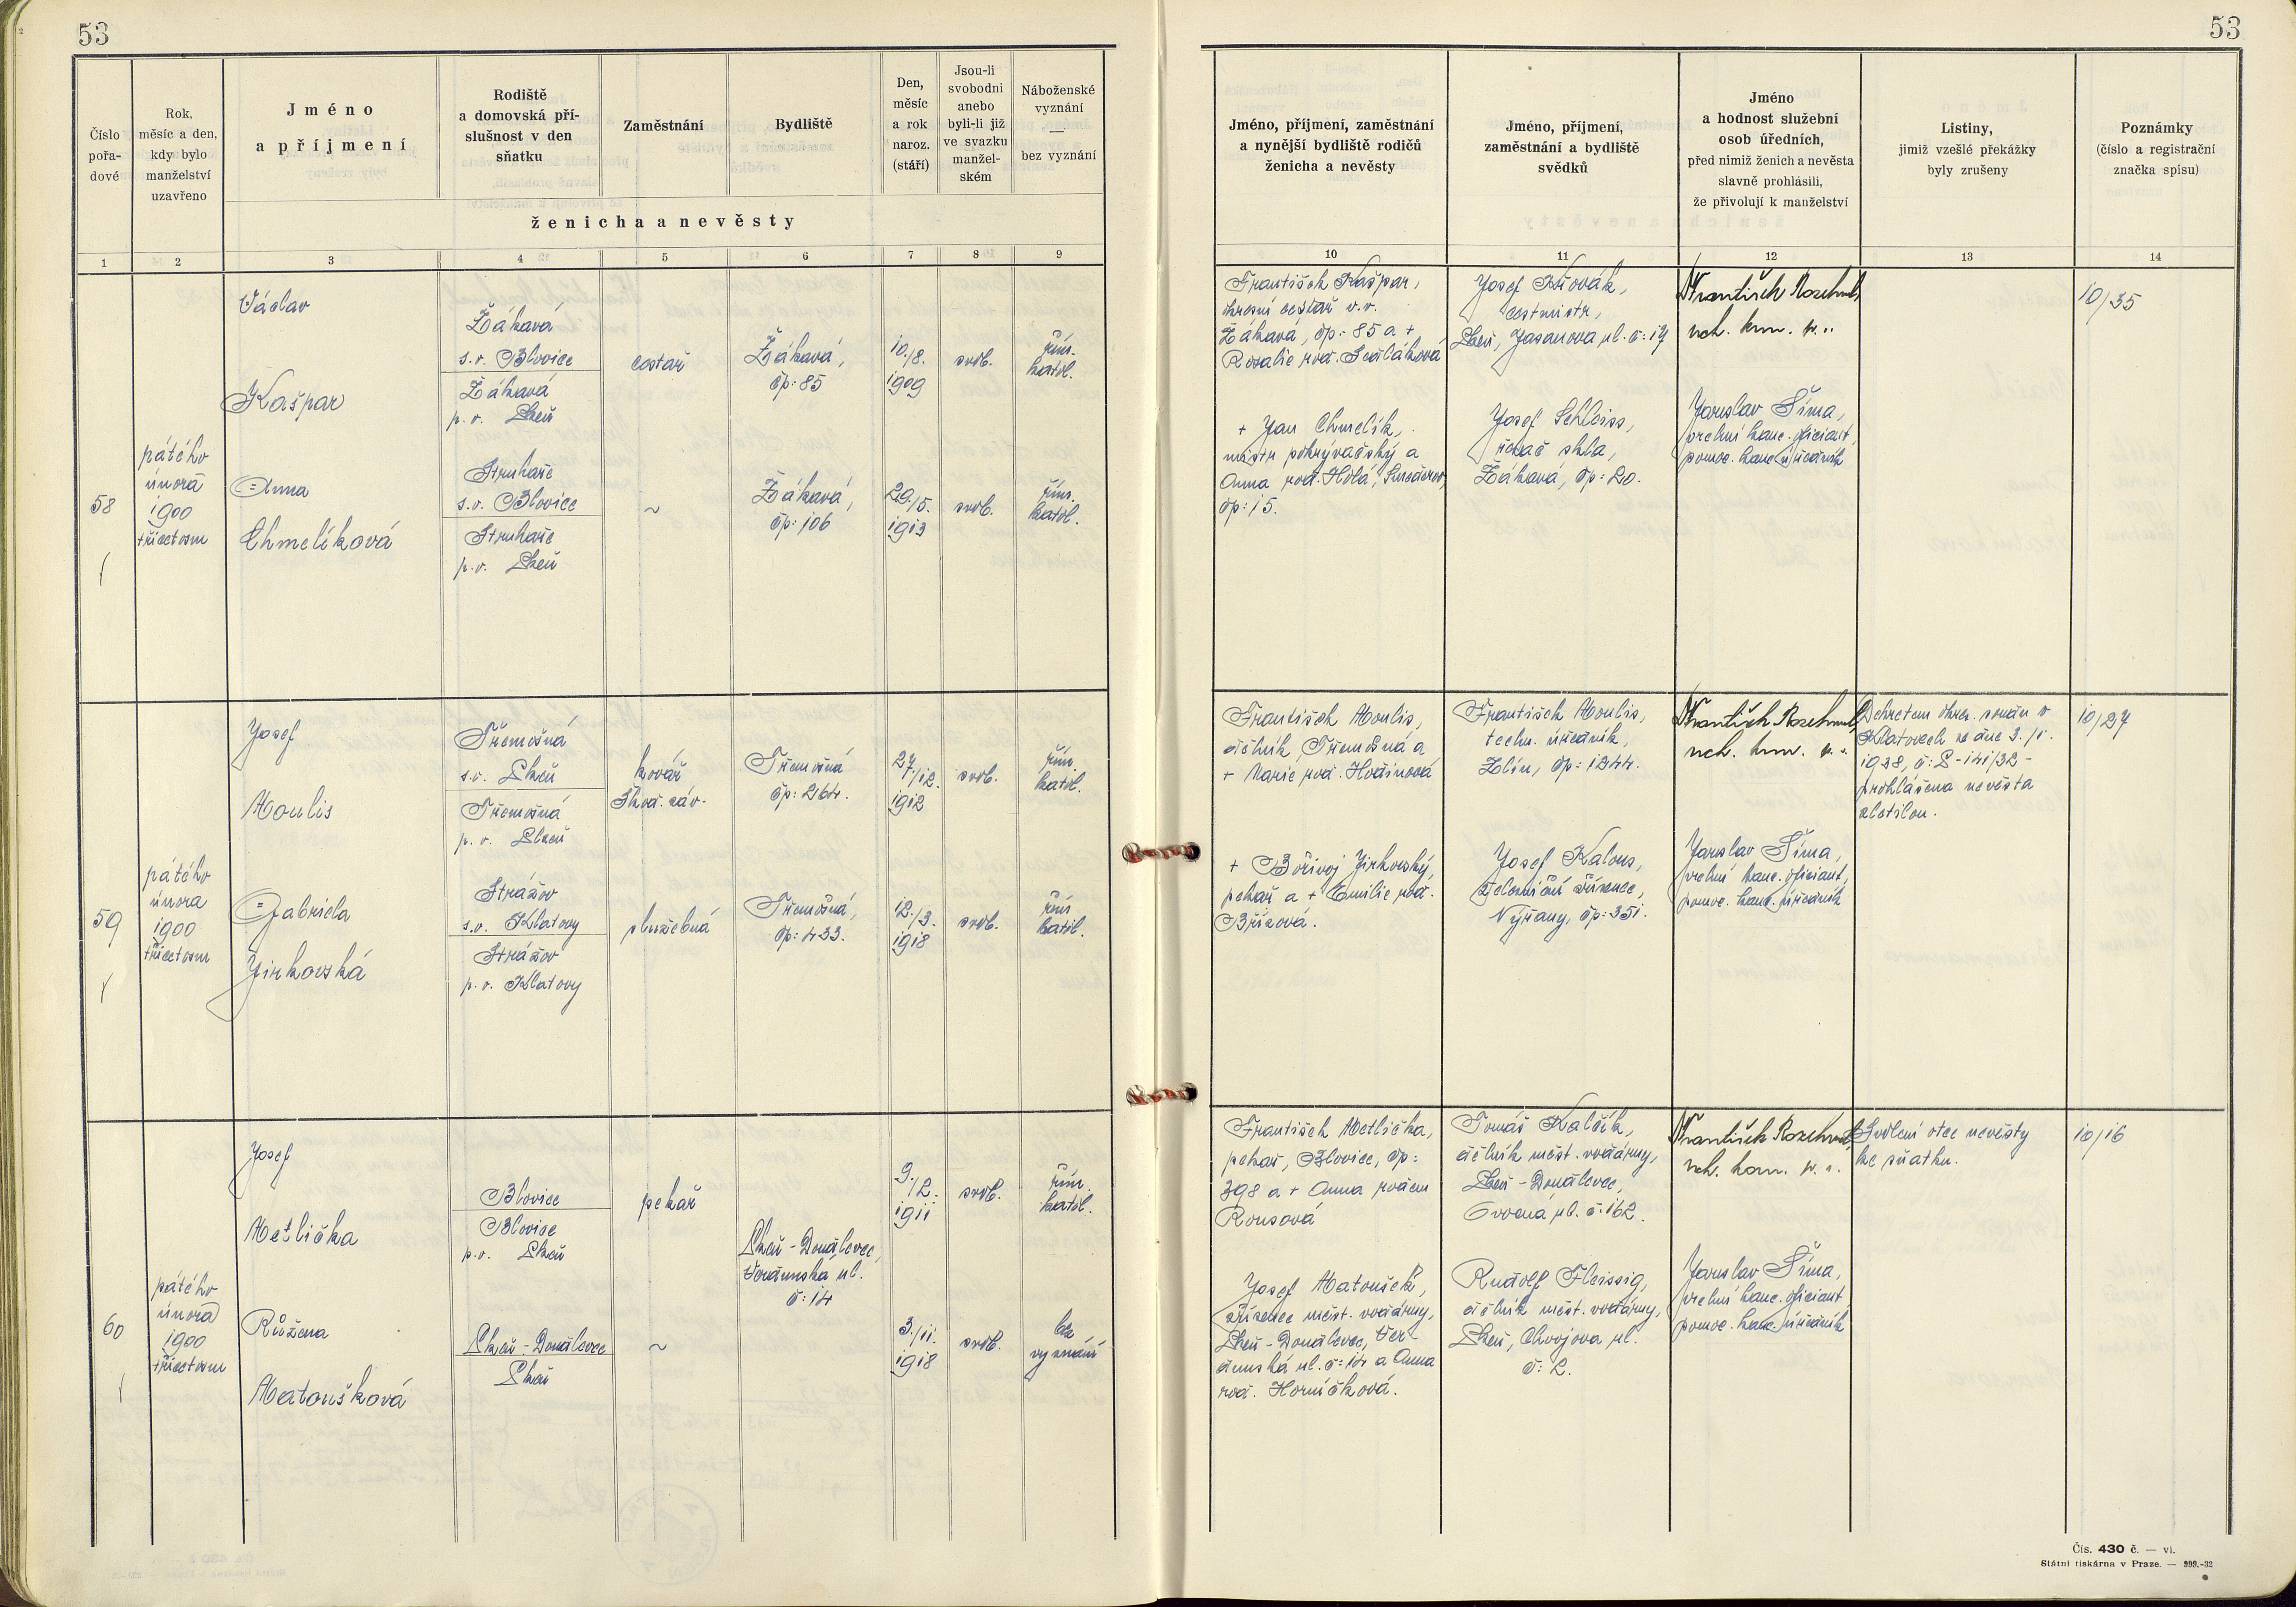 53
53
Číslo
pořa-
dové
Rok,
měsíc a den,
kdy bylo
manželství
uzavřeno
Jméno
a příjmení
Rodiště
a domovská pří-
slušnost v den
sňatku
Zaměstnání
Bydliště
Den,
měsíc
a rok
naroz.
(stáří)
Jsou-li
svobodni
anebo
byli-li již
ve svazku
manžel-
ském
Náboženské
vyznání
—
bez vyznání
ženicha a nevěsty
Jméno, příjmení, zaměstnání
a nynější bydliště rodičů
ženicha a nevěsty
Jméno, příjmení,
zaměstnání a bydliště
svědků
Jméno
a hodnost služební
osob úředních,
před nimiž ženich a nevěsta
slavně prohlásili,
že přivolují k manželství
Listiny,
jimiž vzešlé překážky
byly zrušeny
Poznámky
(číslo a registrační
značka spisu)
1 2 3 4 5 6 7 8 9
10 11 12 13 14
58
pátého
února
1900
třicetosm
Václav
Kašpar
Žákavá
s.o. Blovice
Žákavá
p.o. Plzeň
cestář
Žákavá,
čp: 85
10./8.
1909
svob.
řím.
katol.
Anna
Chmelíková
Struhaře
s.o. Blovice
Struhaře
p.o. Plzeň
~
Žákavá,
čp: 106
29./5.
1913
svob.
řím.
katol.
František Kašpar,
okresní cestář v.v.
Žákavá, čp: 85 a +
Rosalie roz. Sedláková
+ Jan Chmelík,
mistr pokryvačský a
Anna roz. Holá,
čp: 15.
Josef Novák,
cestmistr,
Plzeň, Jasanova ul. č: 17
Josef Schleiss,
řezač skla,
Žákavá, čp: 20.
František
rch. kom.
Jaroslav Šíma,
vrchní kanc. oficiant,
pomoc. kanc. úředník
10/35
59
pátého
února
1900
třicetosm
Josef
Moulis
Třemošná
s.o. Plzeň
Třemošná
p.o. Plzeň
kovář
Škod. záv.
Třemošná
čp: 264.
27./12.
1912
svob.
řím.
katol.
Gabriela
Jirkovská
Strážov
s.o. Klatovy
Strážov
p.o. Klatovy
služebná
Třemošná,
čp: 433.
12./3.
1918
svob.
řím.
katol.
František Moulis,
dělník, Třemošná a
+ Marie roz. Hodinová
+ Bořivoj Jirkovský,
pekař a + Emilie roz.
Břízová.
František Moulis,
techn. úředník,
Zlín, čp: 1244.
Josef Kalous,
železniční zřízenec,
Nýřany, čp: 351.
František
rch. kom.
Jaroslav Šíma,
vrchní kanc. oficiant,
pomoc. kanc. úředník
Dekretem okres. soudu v
Klatovech ze dne 3./1.
1938, č: P-141/32-
prohlášena nevěsta
zletilou.
10/27
60
pátého
února
1900
třicetosm
Josef
Metlička
Blovice
Blovice
p.o. Plzeň
pekař
Plzeň-Doudlevce,
Vodárenská ul.
č: 14
9./2.
1911
svob.
řím.
katol.
Růžena
Matoušková
Plzeň-Doudlevce
Plzeň
~
3./11.
1918
svob.
bez
vyznání
František Metlička,
pekař, Blovice, čp:
398 a + Anna rozen
Rousová
Josef Matoušek,
zřízenec měst. vodárny,
Plzeň-Doudlevce,
ul. č: 14 a Anna
roz. Horníčková.
Tomáš Kalčík,
dělník měst. vodárny,
Plzeň-Doudlevce,
ul. č: 162.
Rudolf Fleissig,
dělník měst. vodárny,
Plzeň, Chvojova ul.
č: 2.
František
rch. kom.
Jaroslav Šíma,
vrchní kanc. oficiant,
pomoc. kanc. úředník
Svolení otec nevěsty
ke sňatku.
10/16
Čís. 430 č. — vi.
Státní tiskárna v Praze. — 999.-32